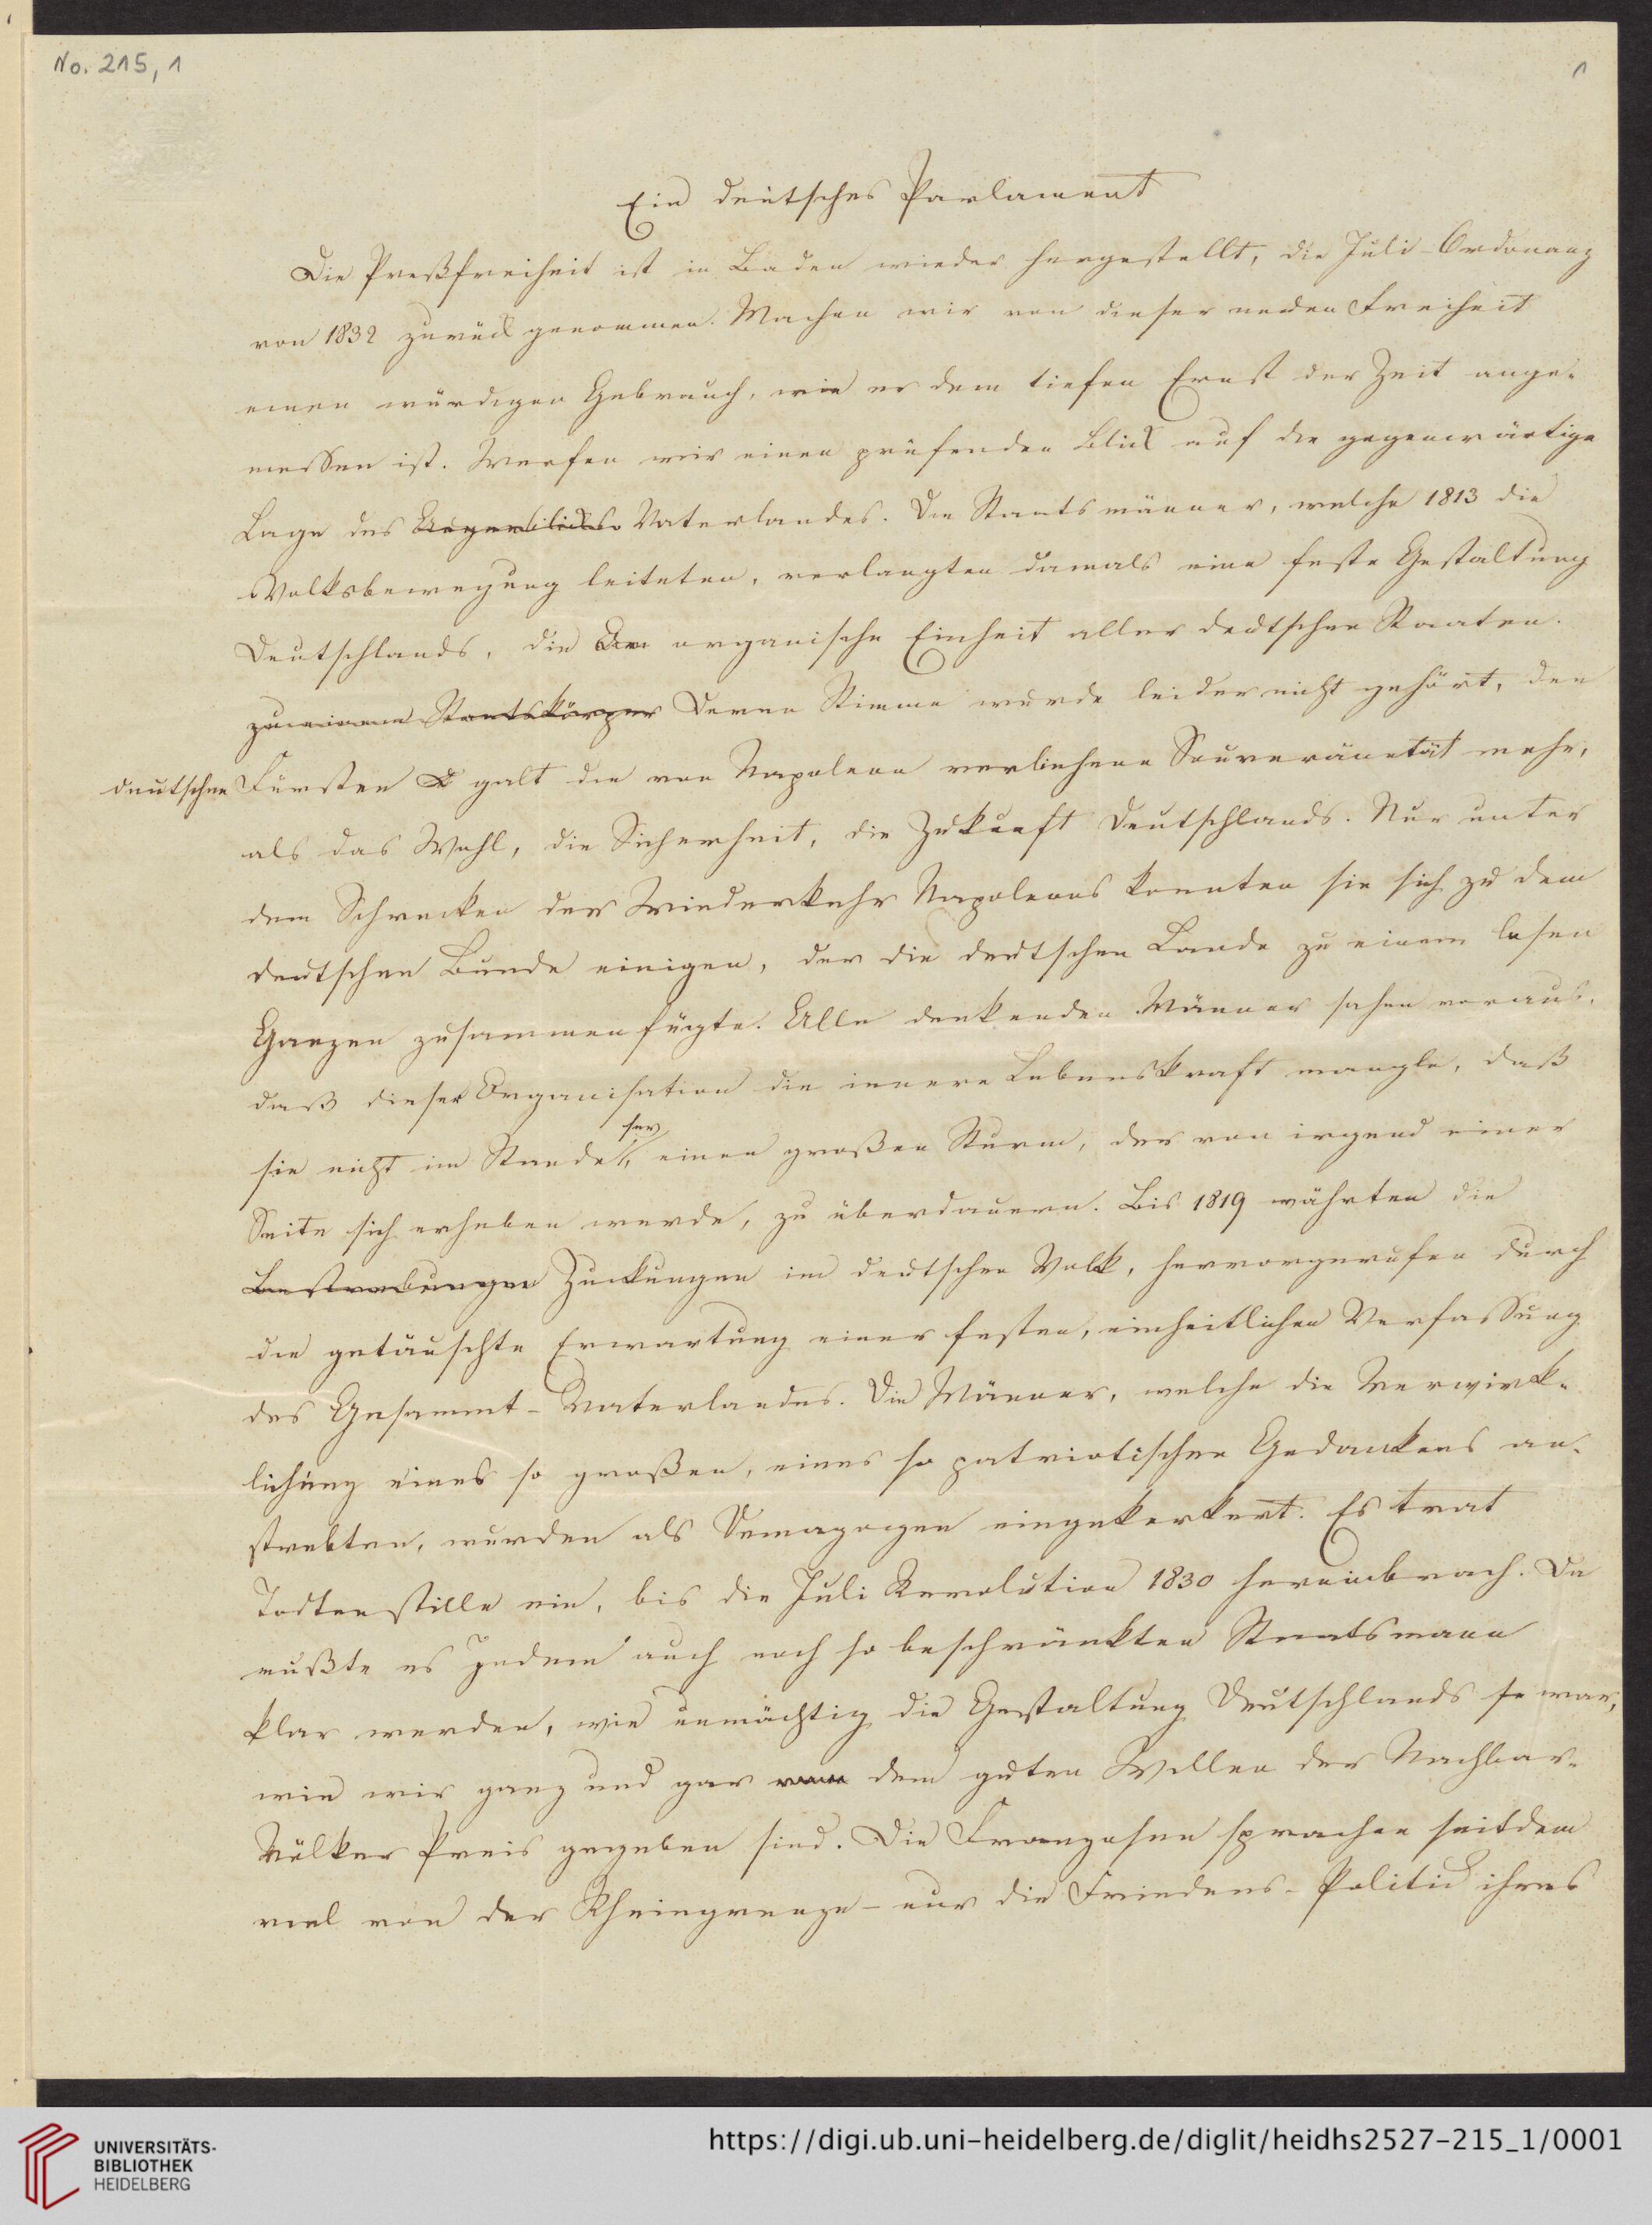 No. 215, 1
1
Ein deutsches Parlament
Die Preßfreiheit ist in Baden wieder hergestellt, die Juli-Ordonanz
von 1832 zurück genommen. Machen wir von dieser neuen Freiheit
einen würdigen Gebrauch, wie er dem tiefen Ernst der Zeit ange-
messen ist. Werfen wir einen prüfenden Blick auf die gegenwärtige
Lage des Augenblicks Vaterlandes. Die Staatsmänner, welche 1813 die
Volksbewegung leiteten, verlangten damals eine feste Gestaltung
Deutschlands, die organische Einheit aller deutschen Staaten.
zu einem Staatskörper Deren Stimme wurde leider nicht gehört, den
deutschen Fürsten galt die von Napoleon verliehene Souveränetät mehr,
als das Wohl, die Sicherheit, die Zukunft Deutschlands. Nur unter
dem Schrecken der Wiederkehr Napoleons konnten sie sich zu dem
deutschen Bunde einigen, der die deutschen Lande zu einem losen
Ganzen zusammenfügte. Alle denkenden Männer sahen voraus,
daß dieser Organisation die innere Lebenskraft mangle, daß
sie nicht im Stande sey, einen großen Sturm, der von irgend einer
Seite sich erheben werde, zu überdauern. Bis 1819 währten die
Bestrebungen Zuckungen im deutschen Volk, hervorgerufen durch
die getäuschte Erwartung einer festen, einheitlichen Verfassung
des Gesammt-Vaterlandes. Die Männer, welche die Verwirk-
lichung eines so großen, eines so patriotischen Gedankens an-
strebten, wurden als Demagogen eingekerkert. Es trat
Todtenstille ein, bis die Juli Revolution 1830 hereinbrach. Da
mußte es jedem auch noch so beschränkten Staatsmann
klar werden, wie unmächtig die Gestaltung Deutschlands se war,
wie wir ganz und gar von dem guten Willen der Nachbar-
Völker Preis gegeben sind. Die Franzosen sprachen seitdem
viel von der Rheingrenze - nur die Friedens-Politik ihres
UNIVERSITÄTS-
BIBLIOTHEK
HEIDELBERG
https://digi.ub.uni-heidelberg.de/diglit/heidhs2527-215_1/0001